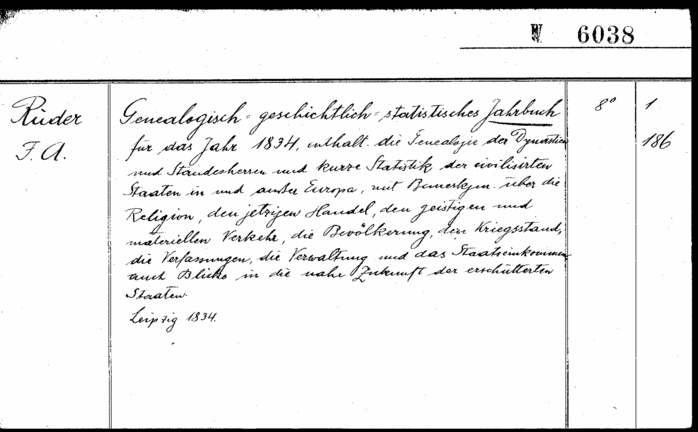 W 6038
Rüder
F. A.
Genealogisch-geschichtlich-statistisches Jahrbuch
für das Jahr 1834, enthält die Genealogie der Dynastien
und Standesherren und kurze Statistik der civilisirten
Staaten in und außer Europa, mit Bemerkgen über die
Religion, den jetzigen Handel, den geistigen und
materiellen Verkehr, die Bevölkerung, den Kriegsstand,
die Verfassungen, die Verwaltung und das Staatseinkommen
auch Blicke in die nahe Zukunft der erschütterten
Staaten.
Leipzig 1834.
8°
1
186